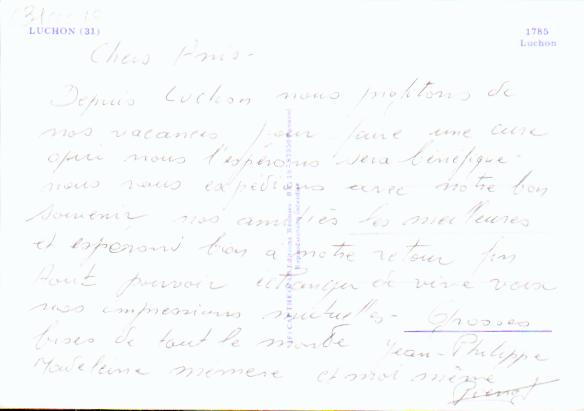 LUCHON (31)
1785
Luchon
Chers Amis -
Depuis Luchon nous profitons de
nos vacances pour faire une cure
qui nous l'espérons sera bénéfique -
nous vous expédions avec notre bon
souvenir nos amitiés les meilleures
et espérons bon à notre retour fin
Août pouvoir échanger de vive voix
nos impressions mutuelles - Grosses
bises de tout le monde Jean-Philippe
Madeleine mémère et moi même